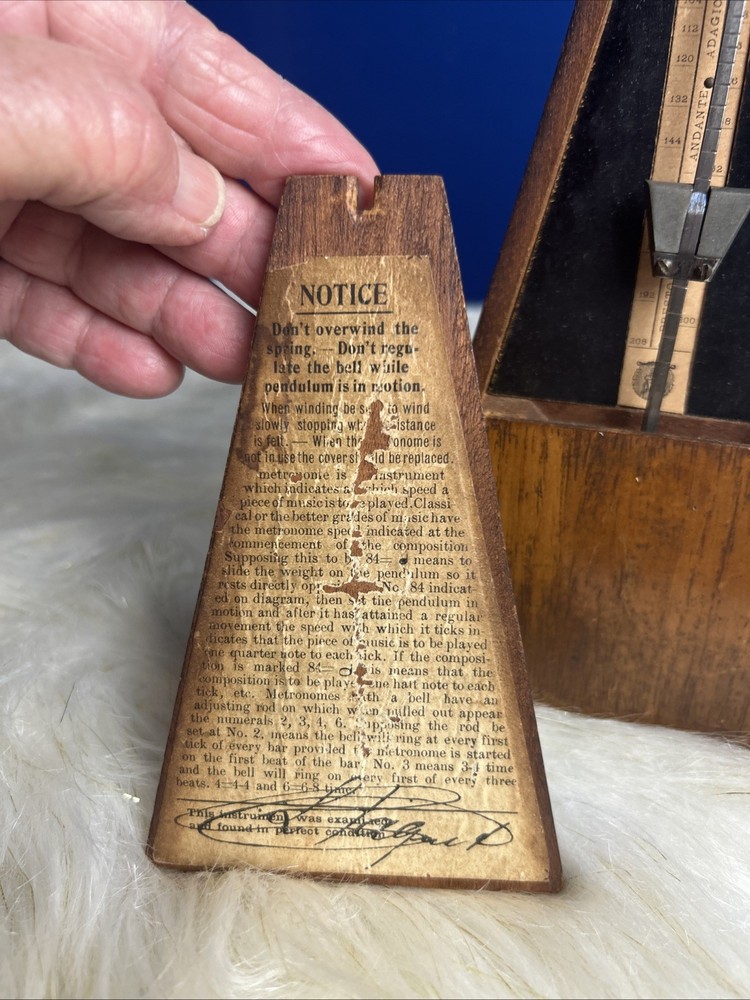 NOTICE
Don't overwind the
spring. — Don't regu-
late the bell while
pendulum is in motion.
When winding be to wind
slowly stopping
is felt. — When the onome is
not in use the cover ld be replaced.
metronome is instrument
which indicates a which speed a
piece of music is to be played. Classi
cal or the better grades of music have
the metronome speed indicated at the
commencement of the composition
Supposing this to b 84= means to
slide the weight on the pendulum so it
rests directly opp No. 84 indicat
ed on diagram, then set the pendulum in
motion and after it has attained a regular
movement the speed with which it ticks in
dicates that the piece of music is to be played
one quarter note to each tick. If the composi-
tion is marked 84= is means that the
composition is to be play ne half note to each
tick, etc. Metronomes with a bell have an
adjusting rod on which when pulled out appear
the numerals 2, 3, 4, 6. Supposing the rod be
set at No. 2, means the bell will ring at every first
tick of every bar provided metronome is started
on the first beat of the bar. No. 3 means 3-4 time
and the bell will ring on every first of every three
beats. 4=4-4 and 6=6-8 time.
This instrument was examined
and found in perfect condition
112
120
132
144
192
208
200
ADAGIO
ANDANTE